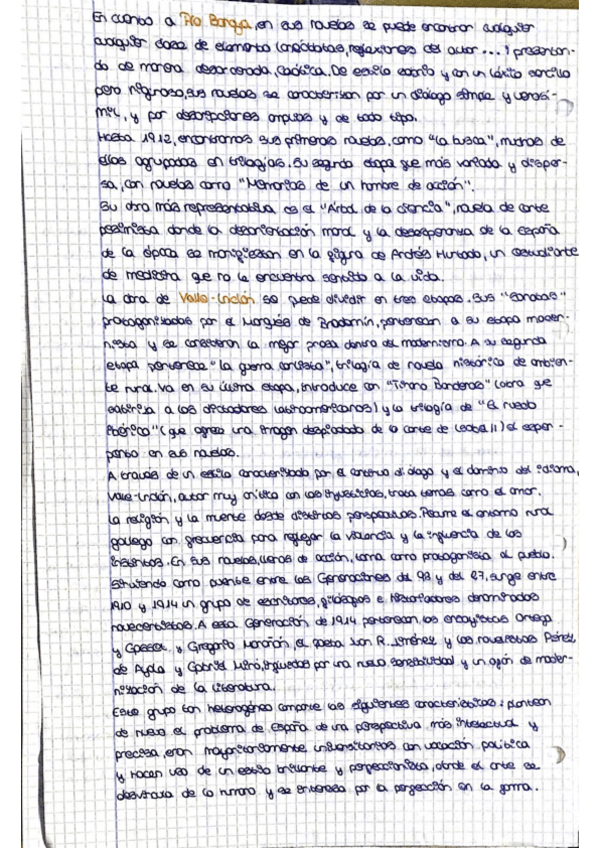 En cuanto a Pío Baroja, en sus novelas se puede encontrar cualquier
cualquier clase de elemento (anécdotas, reflexiones del autor ...) presentan-
do de manera desordenada, caótica. De estilo sobrio y con un léxico sencillo
pero riguroso, sus novelas se caracterizan por un diálogo simple y verosí-
mil, y por descripciones amplias y de todo tipo.
Hasta 1912, encontramos sus primeras novelas, como "La busca", muchas de
ellas agrupadas en trilogías. Su segunda etapa que más variada y disper-
sa, con novelas como "Memorias de un hombre de acción".
Su obra más representativa es el "Árbol de la ciencia", novela de corte
pesimista donde la desorientación moral y la desesperanza de la España
de la época se manifiestan en la figura de Andrés Hurtado, un estudiante
de medicina que no le encuentra sentido a la vida.
La obra de Valle-Inclán se puede dividir en tres etapas. Sus "Sonatas"
protagonizadas por el Marqués de Bradomín, pertenecen a su etapa moder-
nista y se consideran la mejor prosa dentro del modernismo. A su segunda
etapa pertenece "La guerra carlista", trilogía de novela histórica de ambien-
te rural. Ya en su última etapa, introduce con "Tirano Banderas" (obra que
satiriza a los dictadores latinoamericanos) y la trilogía de "El ruedo
ibérico" (que ofrece una imagen despiadada de la corte de Isabel II) el esper-
pento en sus novelas.
A través de un estilo caracterizado por el continuo diálogo y el dominio del idioma,
Valle-Inclán, autor muy crítico con las injusticias, trata temas como el amor,
la religión y la muerte desde distintas perspectivas. Asume el entorno rural
gallego con frecuencia para reflejar la violencia y la influencia de los
instintos. En sus novelas, llenas de acción, toma como protagonista al pueblo.
Sirviendo como puente entre las Generaciones del 98 y del 27, surge entre
1910 y 1914 un grupo de escritores, filósofos e historiadores denominados
novecentistas. A esta Generación de 1914 pertenecen los ensayistas Ortega
y Gasset y Gregorio Marañón, el poeta Juan R. Jiménez y los novelistas Pérez
de Ayala y Gabriel Miró, influidos por una nueva sensibilidad y un afán de moder-
nización de la literatura.
Este grupo tan heterogéneo comparte las siguientes características: plantean
de nuevo el problema de España de una perspectiva más intelectual y
precisa, eran mayoritariamente universitarios con vocación política
y hacen uso de un estilo brillante y perfeccionista, donde el arte se
desvincula de lo humano y se interesa por la perfección en la forma.